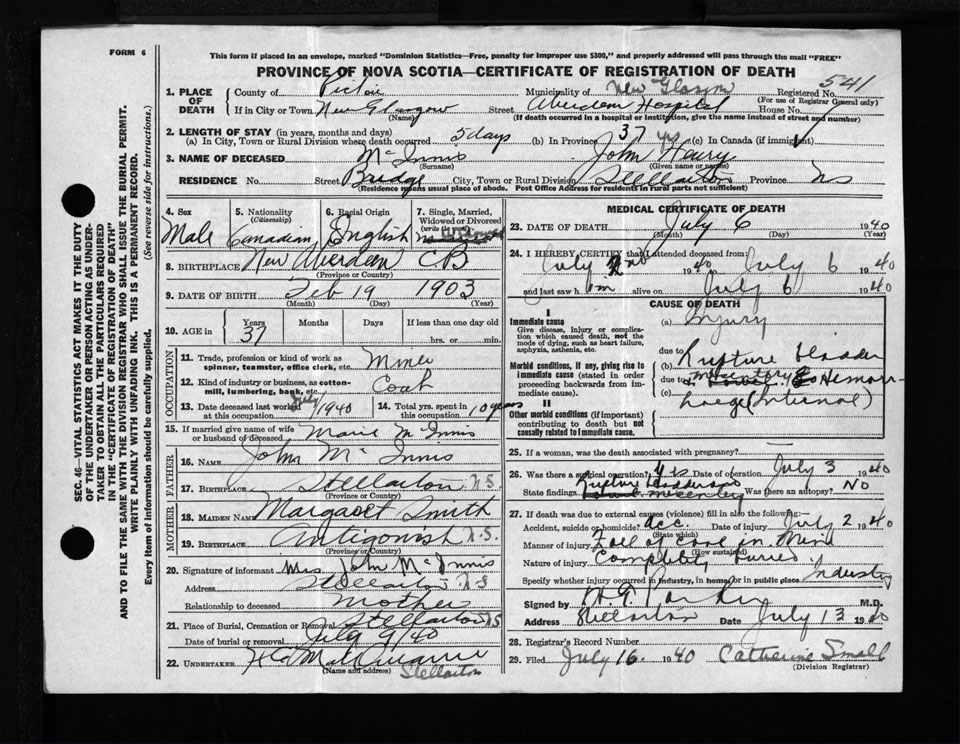 FORM 6
This form if placed in an envelope, marked "Dominion Statistics—Free, penalty for improper use $300," and properly addressed will pass through the mail "FREE"
PROVINCE OF NOVA SCOTIA—CERTIFICATE OF REGISTRATION OF DEATH
541
1. PLACE OF DEATH County of Pictou Municipality of New Glasgow Registered No.
(For use of Registrar General only)
If in City or Town New Glasgow Street Aberdeen Hospital House No.
(Name) (If death occurred in a hospital or institution, give the name instead of street and number)
2. LENGTH OF STAY (in years, months and days)
(a) In City, Town or Rural Division where death occurred 5 days (b) In Province 37 yrs (c) In Canada (if immigrant)
3. NAME OF DECEASED McInnis John Henry
(Surname) (Given name or names)
RESIDENCE No. Street Bridge City, Town or Rural Division Stellarton Province NS
(Residence means usual place of abode. Post Office Address for residents in rural parts not sufficient)
4. Sex Male
5. Nationality (Citizenship) Canadian
6. Racial Origin English
7. Single, Married, Widowed or Divorced (write the word)
8. BIRTHPLACE New Aberdeen CB
(Province or Country)
9. DATE OF BIRTH Feb 19 1903
(Month) (Day) (Year)
10. AGE in Years Months Days If less than one day old
37 hrs. or min.
OCCUPATION
11. Trade, profession or kind of work as spinner, teamster, office clerk, etc. Miner
12. Kind of industry or business, as cotton-mill, lumbering, bank, etc. Coal
13. Date deceased last worked at this occupation July 1940
14. Total yrs. spent in this occupation 10 years
15. If married give name of wife or husband of deceased Marie McInnis
FATHER
16. Name John McInnis
17. Birthplace Stellarton N.S.
(Province or Country)
MOTHER
18. Maiden Name Margaret Smith
19. Birthplace Antigonish N.S.
(Province or Country)
20. Signature of informant Mrs John McInnis
Address Stellarton NS
Relationship to deceased mother
21. Place of Burial, Cremation or Removal Stellarton NS
Date of burial or removal July 9/40
22. UNDERTAKER
(Name and address) Stellarton
MEDICAL CERTIFICATE OF DEATH
23. DATE OF DEATH July 6 1940
(Month) (Day) (Year)
24. I HEREBY CERTIFY that I attended deceased from:
July 2nd 1940 to July 6 1940
and last saw him alive on July 6 1940
CAUSE OF DEATH
I
Immediate cause (a) Injury
Give disease, injury or complication which caused death, not the mode of dying, such as heart failure, asphyxia, asthenia, etc.
due to
(b) Rupture bladder
Morbid conditions, if any, giving rise to immediate cause (stated in order proceeding backwards from immediate cause).
due to mesentery Hemorr-
(c) hage (Internal)
II
Other morbid conditions (if important) contributing to death but not causally related to immediate cause.
25. If a woman, was the death associated with pregnancy?
26. Was there a surgical operation? yes Date of operation July 3 1940
State findings Rupture bladder and mesentery Was there an autopsy? No
27. If death was due to external causes (violence) fill in also the following:
Accident, suicide or homicide? acc. Date of injury July 2 1940
(State which)
Manner of injury Fall of Coal in Mine
(How sustained)
Nature of injury Completely buried
Specify whether injury occurred in industry, in home, or in public place Industry
Signed by M.D.
Address Stellarton Date July 13 1940
28. Registrar's Record Number
29. Filed July 16 1940 Catherine Small
(Division Registrar)
SEC. 46—VITAL STATISTICS ACT MAKES IT THE DUTY
OF THE UNDERTAKER OR PERSON ACTING AS UNDER-
TAKER TO OBTAIN ALL THE PARTICULARS REQUIRED
IN THE "CERTIFICATE OF REGISTRATION OF DEATH"
AND TO FILE THE SAME WITH THE DIVISION REGISTRAR WHO SHALL ISSUE THE BURIAL PERMIT.
WRITE PLAINLY WITH UNFADING INK. THIS IS A PERMANENT RECORD.
Every item of information should be carefully supplied. (See reverse side for instructions.)